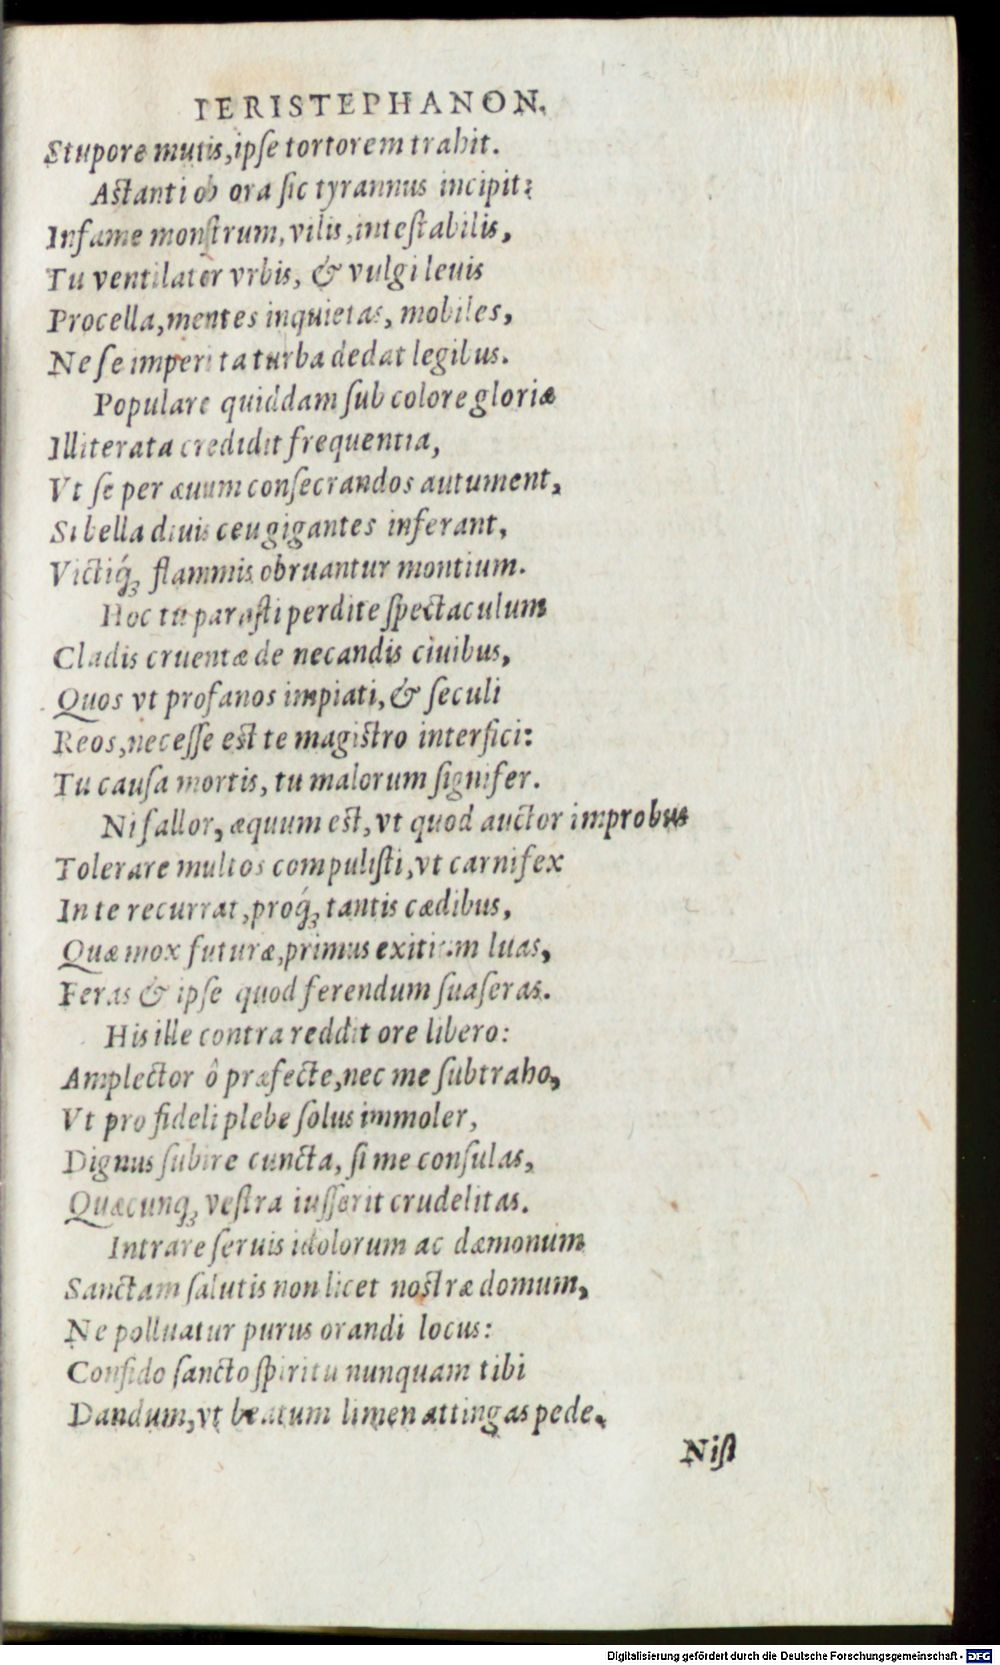 PERISTEPHANON.
Stupore mutis,ipſe tortorem trahit.
Aſtanti ob ora ſic tyrannus incipit:
Infame monſtrum, vilis,inteſtabilis,
Tu ventilator vrbis, & vulgi leuis
Procella,mentes inquietas, mobiles,
Ne ſe imperita turba dedat legibus.
Populare quiddam ſub colore gloriæ
Illiterata credidit frequentia,
Vt ſe per æuum conſecrandos autument,
Si bella diuis ceu gigantes inferant,
Victiq́ꝫ flammis obruantur montium.
Hoc tu paraſti perdite ſpectaculum
Cladis cruentæ de necandis ciuibus,
Quos vt profanos impiati, & ſeculi
Reos,neceſſe eſt te magiſtro interfici:
Tu cauſa mortis, tu malorum ſignifer.
Ni fallor, æquum eſt, vt quod auctor improbus
Tolerare multos compuliſti, vt carnifex
In te recurrat,proq́ꝫ tantis cædibus,
Quæ mox futuræ,primus exitium luas,
Feras & ipſe quod ferendum ſuaſeras.
His ille contra reddit ore libero:
Amplector ô præfecte,nec me ſubtraho,
Vt pro fideli plebe ſolus immoler,
Dignus ſubire cuncta, ſi me conſulas,
Quæcunqꝫ veſtra iuſſerit crudelitas.
Intrare ſeruis idolorum ac dæmonum
Sanctam ſalutis non licet noſtræ domum,
Ne polluatur purus orandi locus:
Confido ſancto ſpiritu nunquam tibi
Dandum,vt beatum limen attingas pede.
Niſi
Digitalisierung gefördert durch die Deutsche Forschungsgemeinschaft - DFG